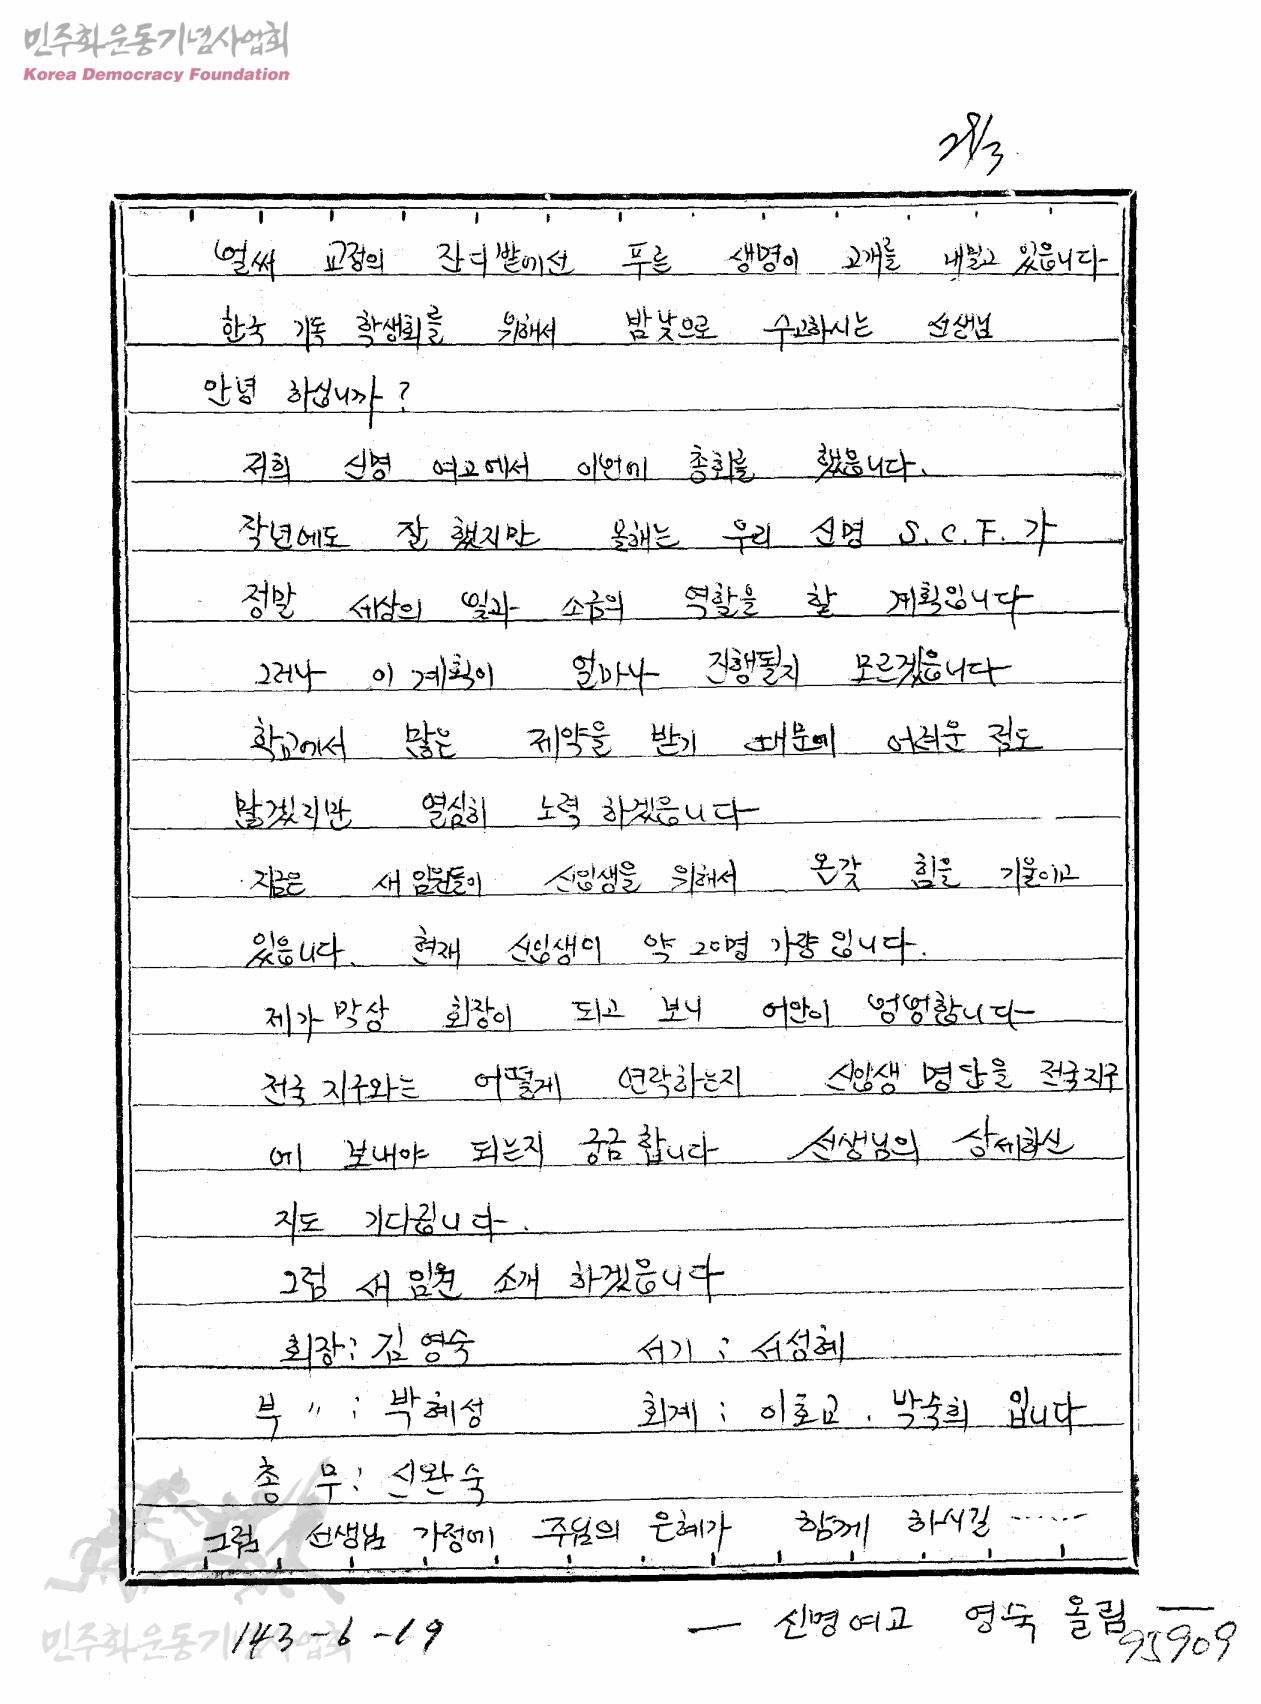 민주화운동기념사업회
Korea Democracy Foundation
28/3
벌써 교정의 잔디밭에선 푸른 생명이 고개를 내밀고 있읍니다
한국 기독 학생회를 위해서 밤낮으로 수고하시는 선생님
안녕 하십니까?
저희 신명 여고에서 이번에 총회를 했읍니다.
작년에도 잘 했지만 올해는 우리 신명 S.C.F.가
정말 세상의 빛과 소금의 역할을 할 계획입니다
그러나 이 계획이 얼마나 진행될지 모르겠읍니다
학교에서 많은 제약을 받기 때문에 어려운 점도
많겠지만 열심히 노력 하겠읍니다
지금은 새 임원들이 신입생을 위해서 온갖 힘을 기울이고
있읍니다. 현재 신입생이 약 20명 가량 입니다.
제가 막상 회장이 되고 보니 어안이 벙벙합니다
전국 지구와는 어떻게 연락하는지 신입생 명단을 전국지구
에 보내야 되는지 궁금 합니다 선생님의 상세하신
지도 기다립니다.
그럼 새 임원 소개 하겠읍니다
회장: 김영숙 서기: 서성혜
부 〃 : 박혜성 회계: 이호교. 박숙희 입니다
총 무: 신완숙
그럼 선생님 가정에 주님의 은혜가 함께 하시길 ……
— 신명여고 영숙 올림 —
143-6-19
95909
민주화운동기념사업회